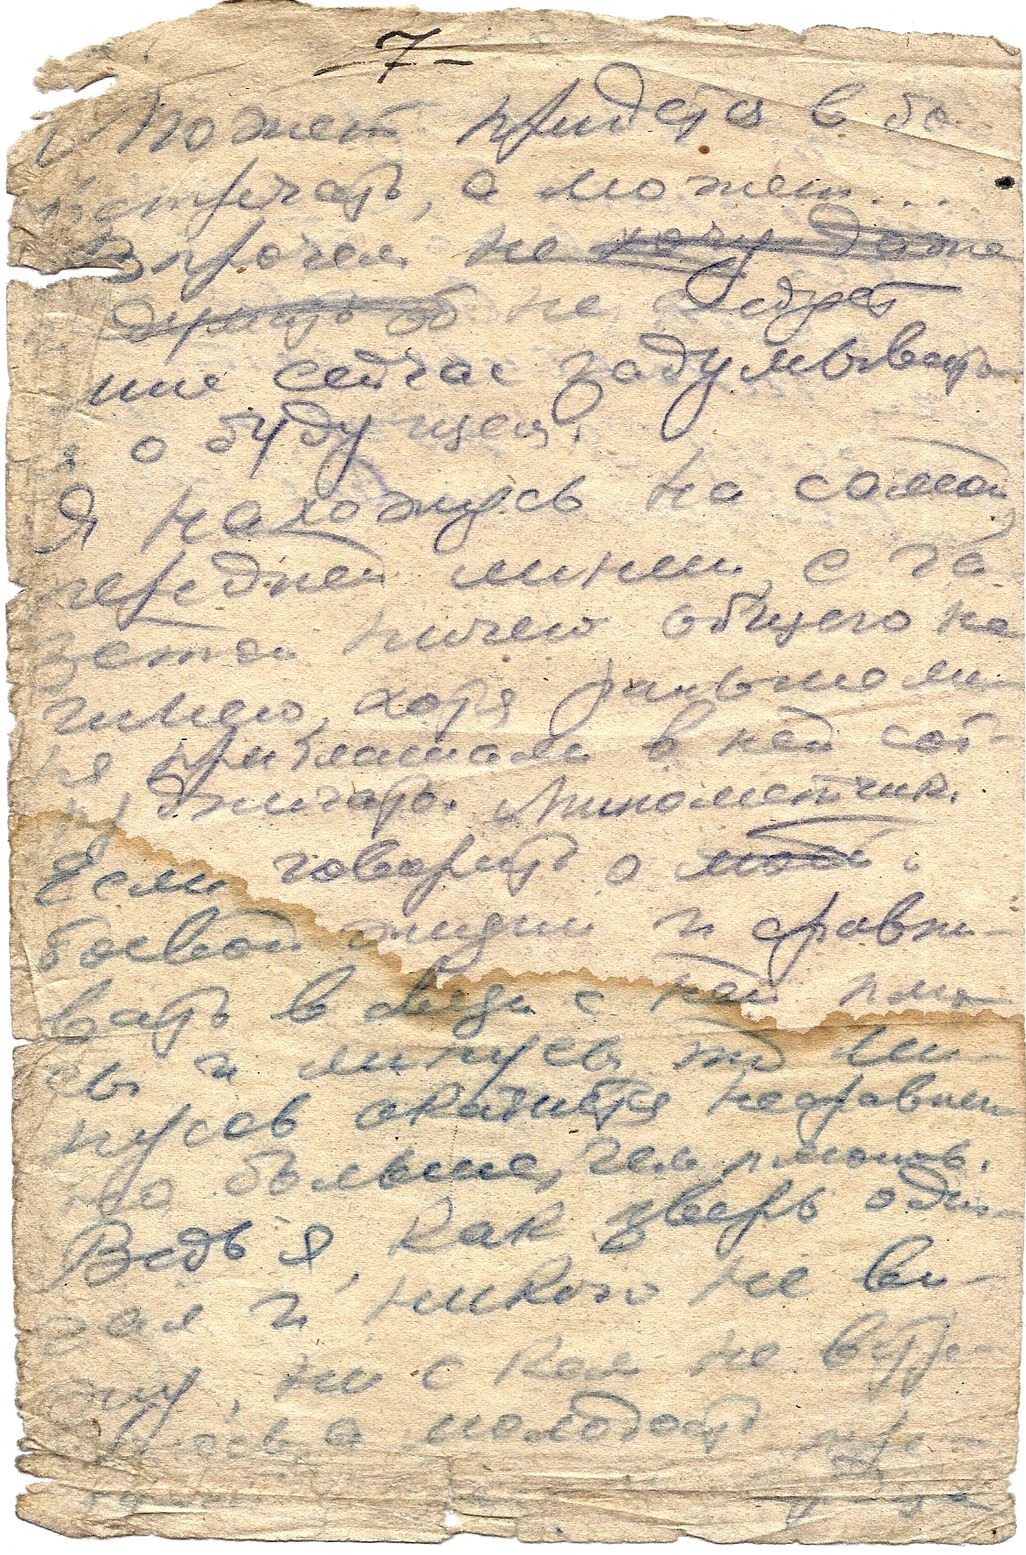 7
Может придется в бою
встречать, а может...
Впрочем не хочу даже
думать об не следует
мне сейчас задумывать-
ся о будущем.
Я нахожусь на самой
передней линии, с га-
зетой ничего общего не
имею, хотя раньше ме-
ня приглашали в ней сот-
рудничать. Минометчик.
Если говорить о моей
боевой жизни и сравни-
вать в связи с ней плю-
сы и минусы, то ми-
нусов окажется несравнен-
но больше, чем плюсов.
Ведь я, как зверь оди-
чал и никого не ви-
жу, ни с кем не встре-
чаюсь, а молодость